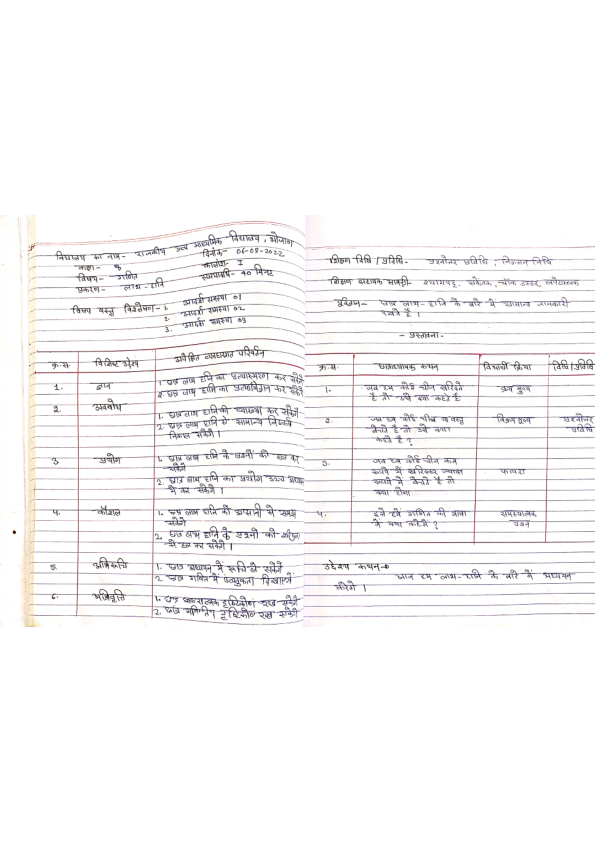 विद्यालय का नाम- राजकीय उच्च माध्यमिक विद्यालय,
दिनांक- 06-08-2022
कक्षा- 8
कालांश- I
विषय- गणित
समयावधि- 40 मिनट
प्रकरण- लाभ-हानि
विषय वस्तु विश्लेषण- 1. आदर्श समस्या 01
2. आदर्श समस्या 02
3. आदर्श समस्या 03
क्र.स. विशिष्ट उद्देश्य अपेक्षित व्यवहारगत परिवर्तन
1. ज्ञान 1. छात्र लाभ हानि का प्रत्यास्मरण कर सकेंगे
2. छात्र लाभ हानि का प्रत्याभिज्ञान कर सकेंगे
2. अवबोध 1. छात्र लाभ हानि की व्याख्या कर सकेंगे
2. छात्र लाभ हानि से सामान्य निष्कर्ष
निकाल सकेंगे।
3 प्रयोग 1. छात्र लाभ हानि के प्रश्नों को हल कर
सकेंगे
2. छात्र लाभ हानि का प्रयोग
में कर सकेंगे।
4. कौशल 1. छात्र लाभ हानि को आसानी से समझ
सकेंगे
2. छात्र लाभ हानि के प्रश्नों को शीघ्रता
से हल कर सकेंगे।
5. अभिरूचि 1. छात्र अध्यापन में रूचि ले सकेंगे
2. छात्र गणित में उत्सुकता दिखाएंगे
6. अभिवृत्ति 1. छात्र सकारात्मक दृष्टिकोण रख सकेंगे
2. छात्र दृष्टिकोण रख सकेंगे
शिक्षण विधि / प्रविधि- प्रश्नोत्तर प्रविधि, निगमन विधि
शिक्षण सहायक सामग्री- श्यामपट्ट, संकेतक, चॉक डस्टर, लपेटफलक
पूर्वज्ञान- छात्र लाभ-हानि के बारे में सामान्य जानकारी
रखते हैं।
- प्रस्तावना-
क्र.स. छात्राध्यापक कथन विद्यार्थी क्रिया विधि/प्रविधि
1. जब हम कोई चीज खरिदते क्रय मूल्य
है तो उसे क्या कहते है
2. जब हम कोई चीज व वस्तु विक्रय मूल्य प्रश्नोत्तर
बेचते है तो उसे क्या प्रविधि
कहते है?
3. जब हम कोई चीज कम
रूपये में खरिदकर ज्यादा फायदा
रूपये में बेचते है तो
क्या होगा
4. इसे हमें गणित की भाषा समस्यात्मक
में क्या कहेंगे? प्रश्न
उद्देश्य कथन-
आज हम लाभ-हानि के बारे में अध्ययन
करेंगे।